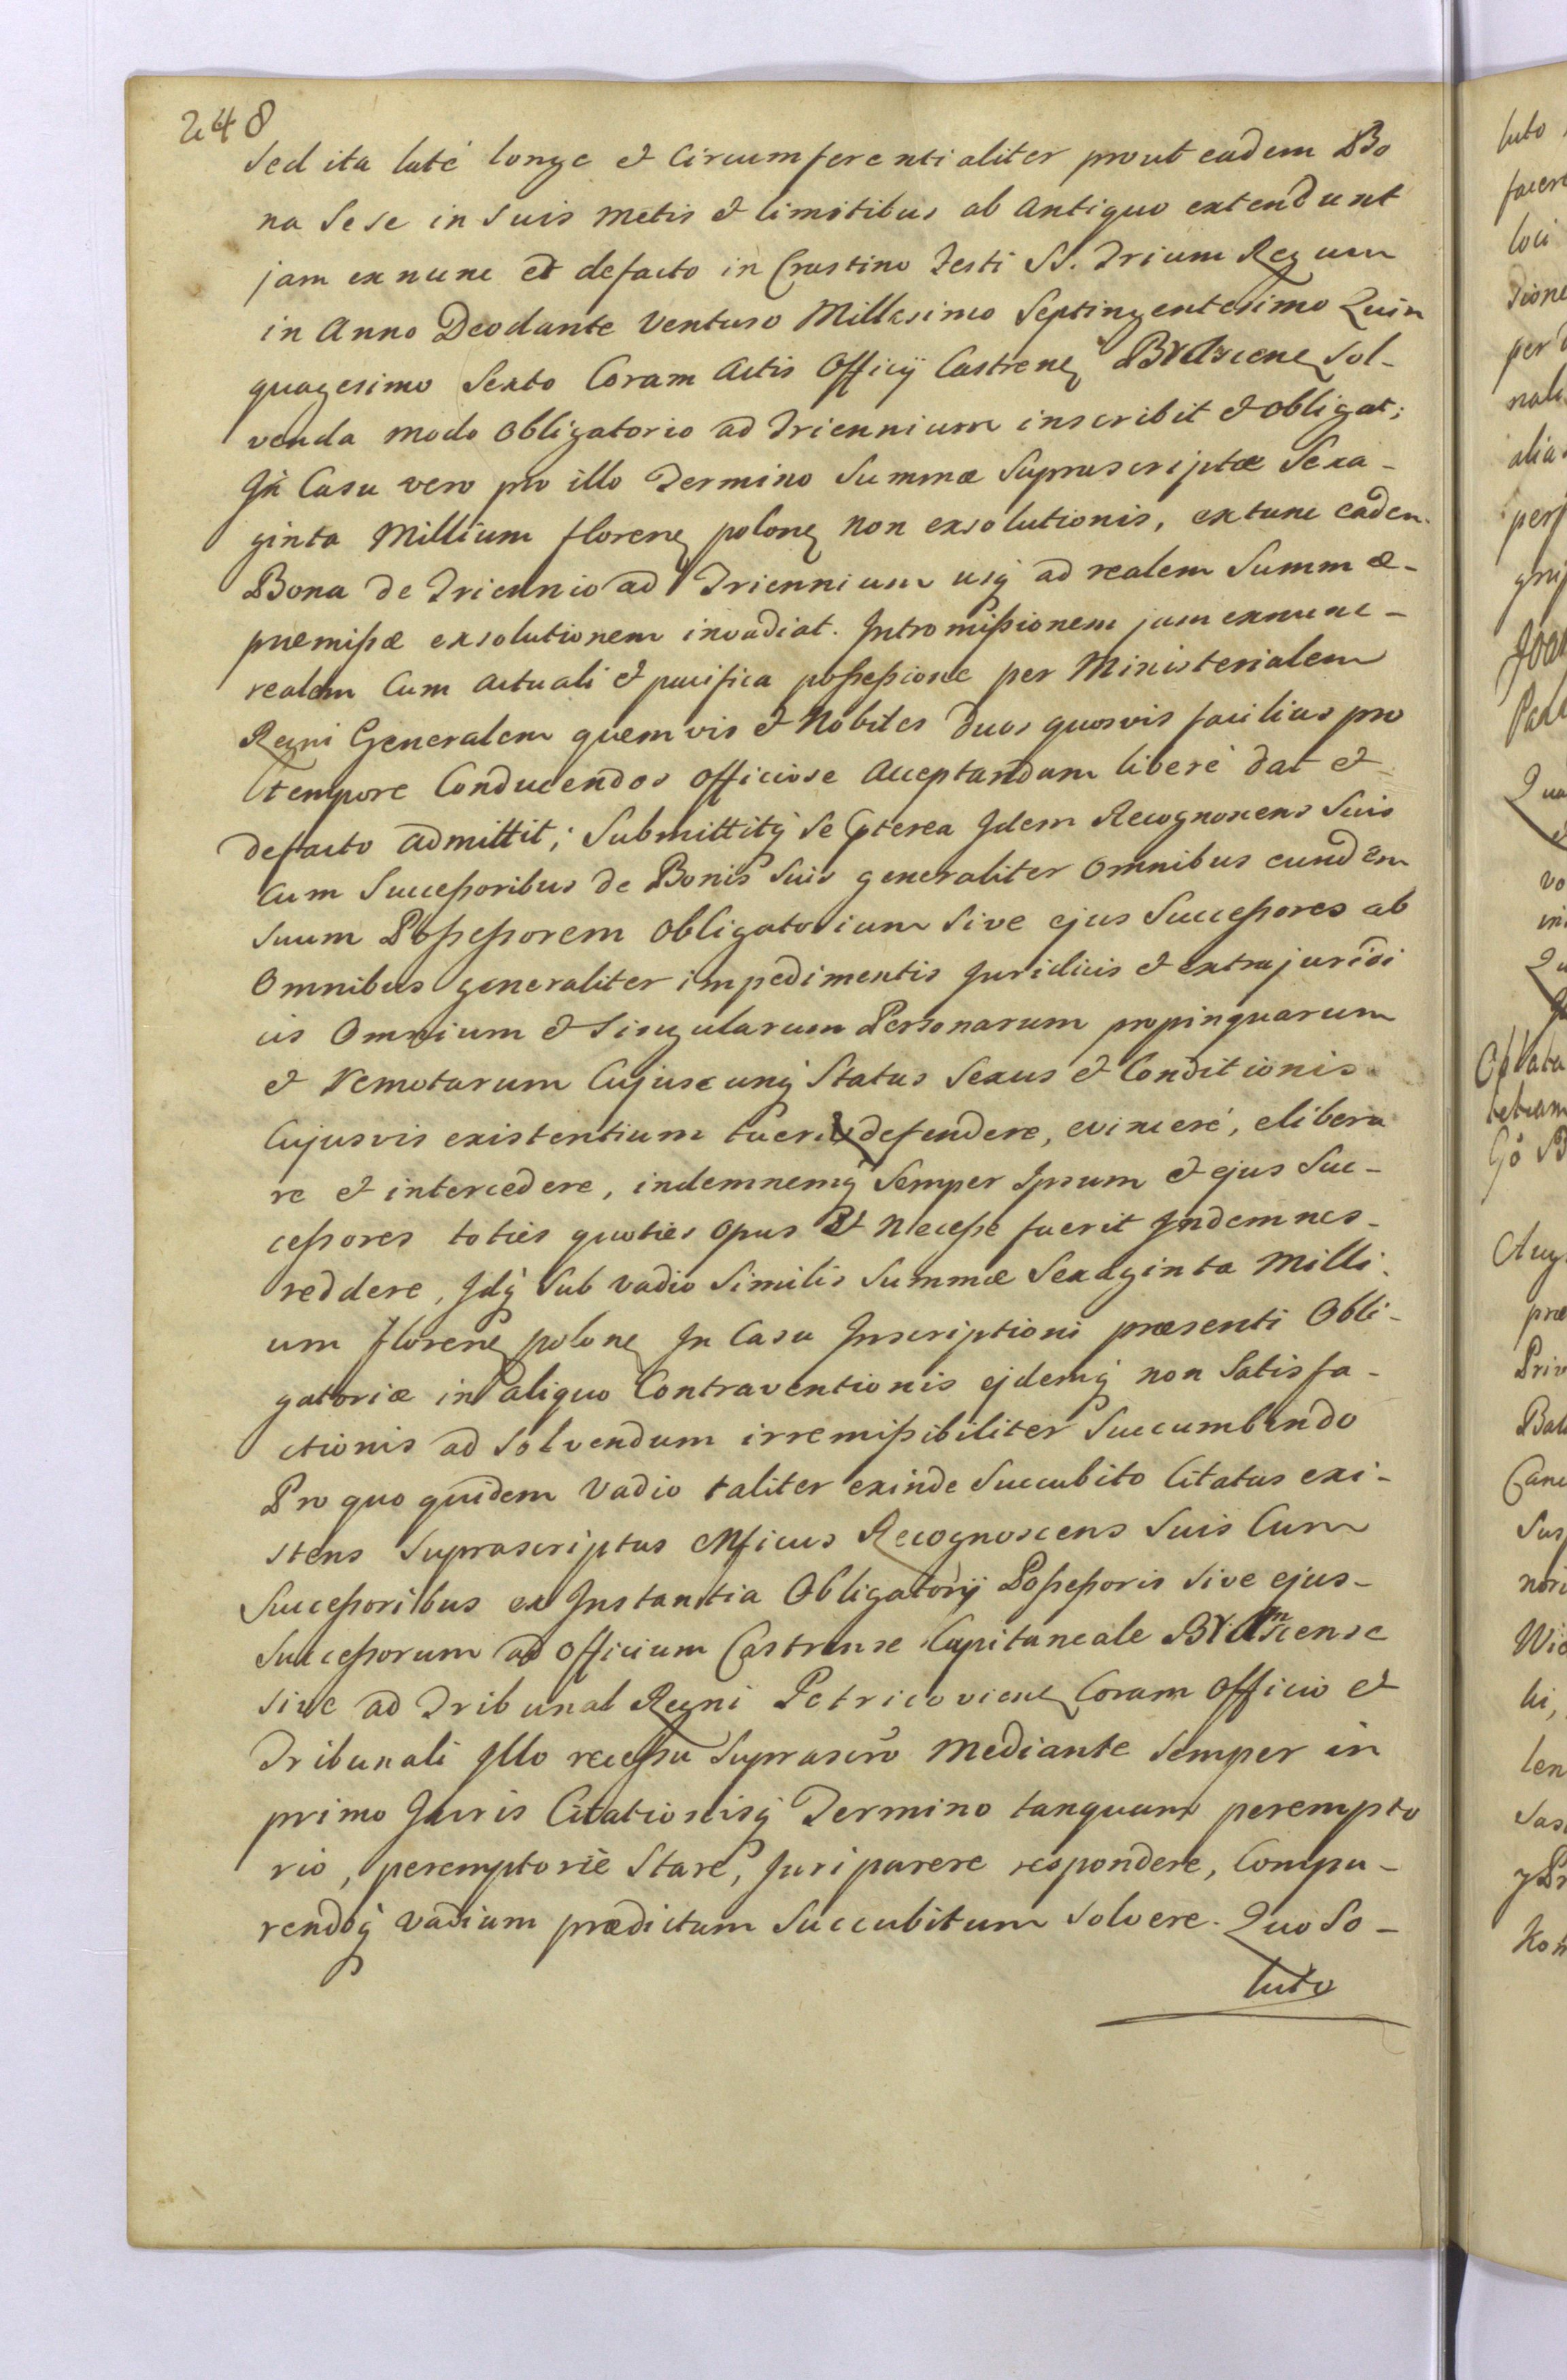 248
Sed ita laté longe et Circumferentialiter prout eadem Bo
na Sese in Suis metis et limitibus ab Antiquo extendunt
jam exnunc et defacto in Crastino Festi SS. Trium Regum
in Anno Deodante Venturo Millesimo Septingentesimo Quin
quagesimo Sexto Coram Actis Officij Castren Sol-
venda modo Obligatorio ad Triennium inscribit et Obligat;
In Casu vero pro illo Termino Summæ Suprascriptæ Sexa-
ginta Millium floren polon non exsolutionis, extunc eadem
Bona de Triennio ad Triennium usq ad realem Summæ-
præmissæ exsolutionem invadiat. Intromissionem jam exnunc-
realem Cum actuali et pacifica possessione per Ministerialem
Regni Generalem quemvis et Nobiles Duos quosvis facilius pro
tempore Conducendos Officiose Acceptandam liberè dat et
defacto admittit; Submittitq Se pterea Idem Recognoscens Suis
Cum Successoribus de Bonis Suis generaliter Omnibus eundem
Suum Possessorem Obligatorium Sive ejus Successores ab
Omnibus generaliter impedimentis Juridicis et extrajuridi
cis Omnium et Singularum Personarum propinquarum
et remotarum Cujuscunq Status Sexus et Conditionis
Cujusvis existentium tueri defendere, evincere, elibera
re et intercedere, indemnemq Semper Ipsum et ejus Suc-
cessores toties quoties Opus Et Necesse fuerit Indemnes-
reddere, Idq Sub vadio Similis Summæ Sexaginta Milli-
um floren polon In Casu Inscriptioni præsenti Obli-
gatoriæ in aliquo Contraventionis ejdemq non Satisfa-
ctionis ad Solvendum irremissibiliter Succumbendo
Pro quo quidem Vadio taliter exinde Succubito Citatus exi-
stens Suprascriptus Mficus Recognoscens Suis Cum
Successoribus ex Instantia Obligatorij Possessoris Sive ejus-
Successorum ad Officium Castrense Capitaneale
Sive ad Tribunal Regni Petricovien Coram Officio et
Tribunali Illo recessu Suprascro Mediante Semper in
primo Juris Citationisq Termino tanquam perempto
rio, peremptoriè Stare, Juri parere respondere, Compa-
rendoq Vadium prædictum Succubitum Solvere. Quo So-
luto